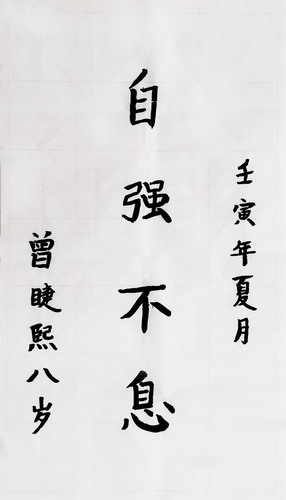 壬寅年夏月
自强不息
曾睫熙八岁